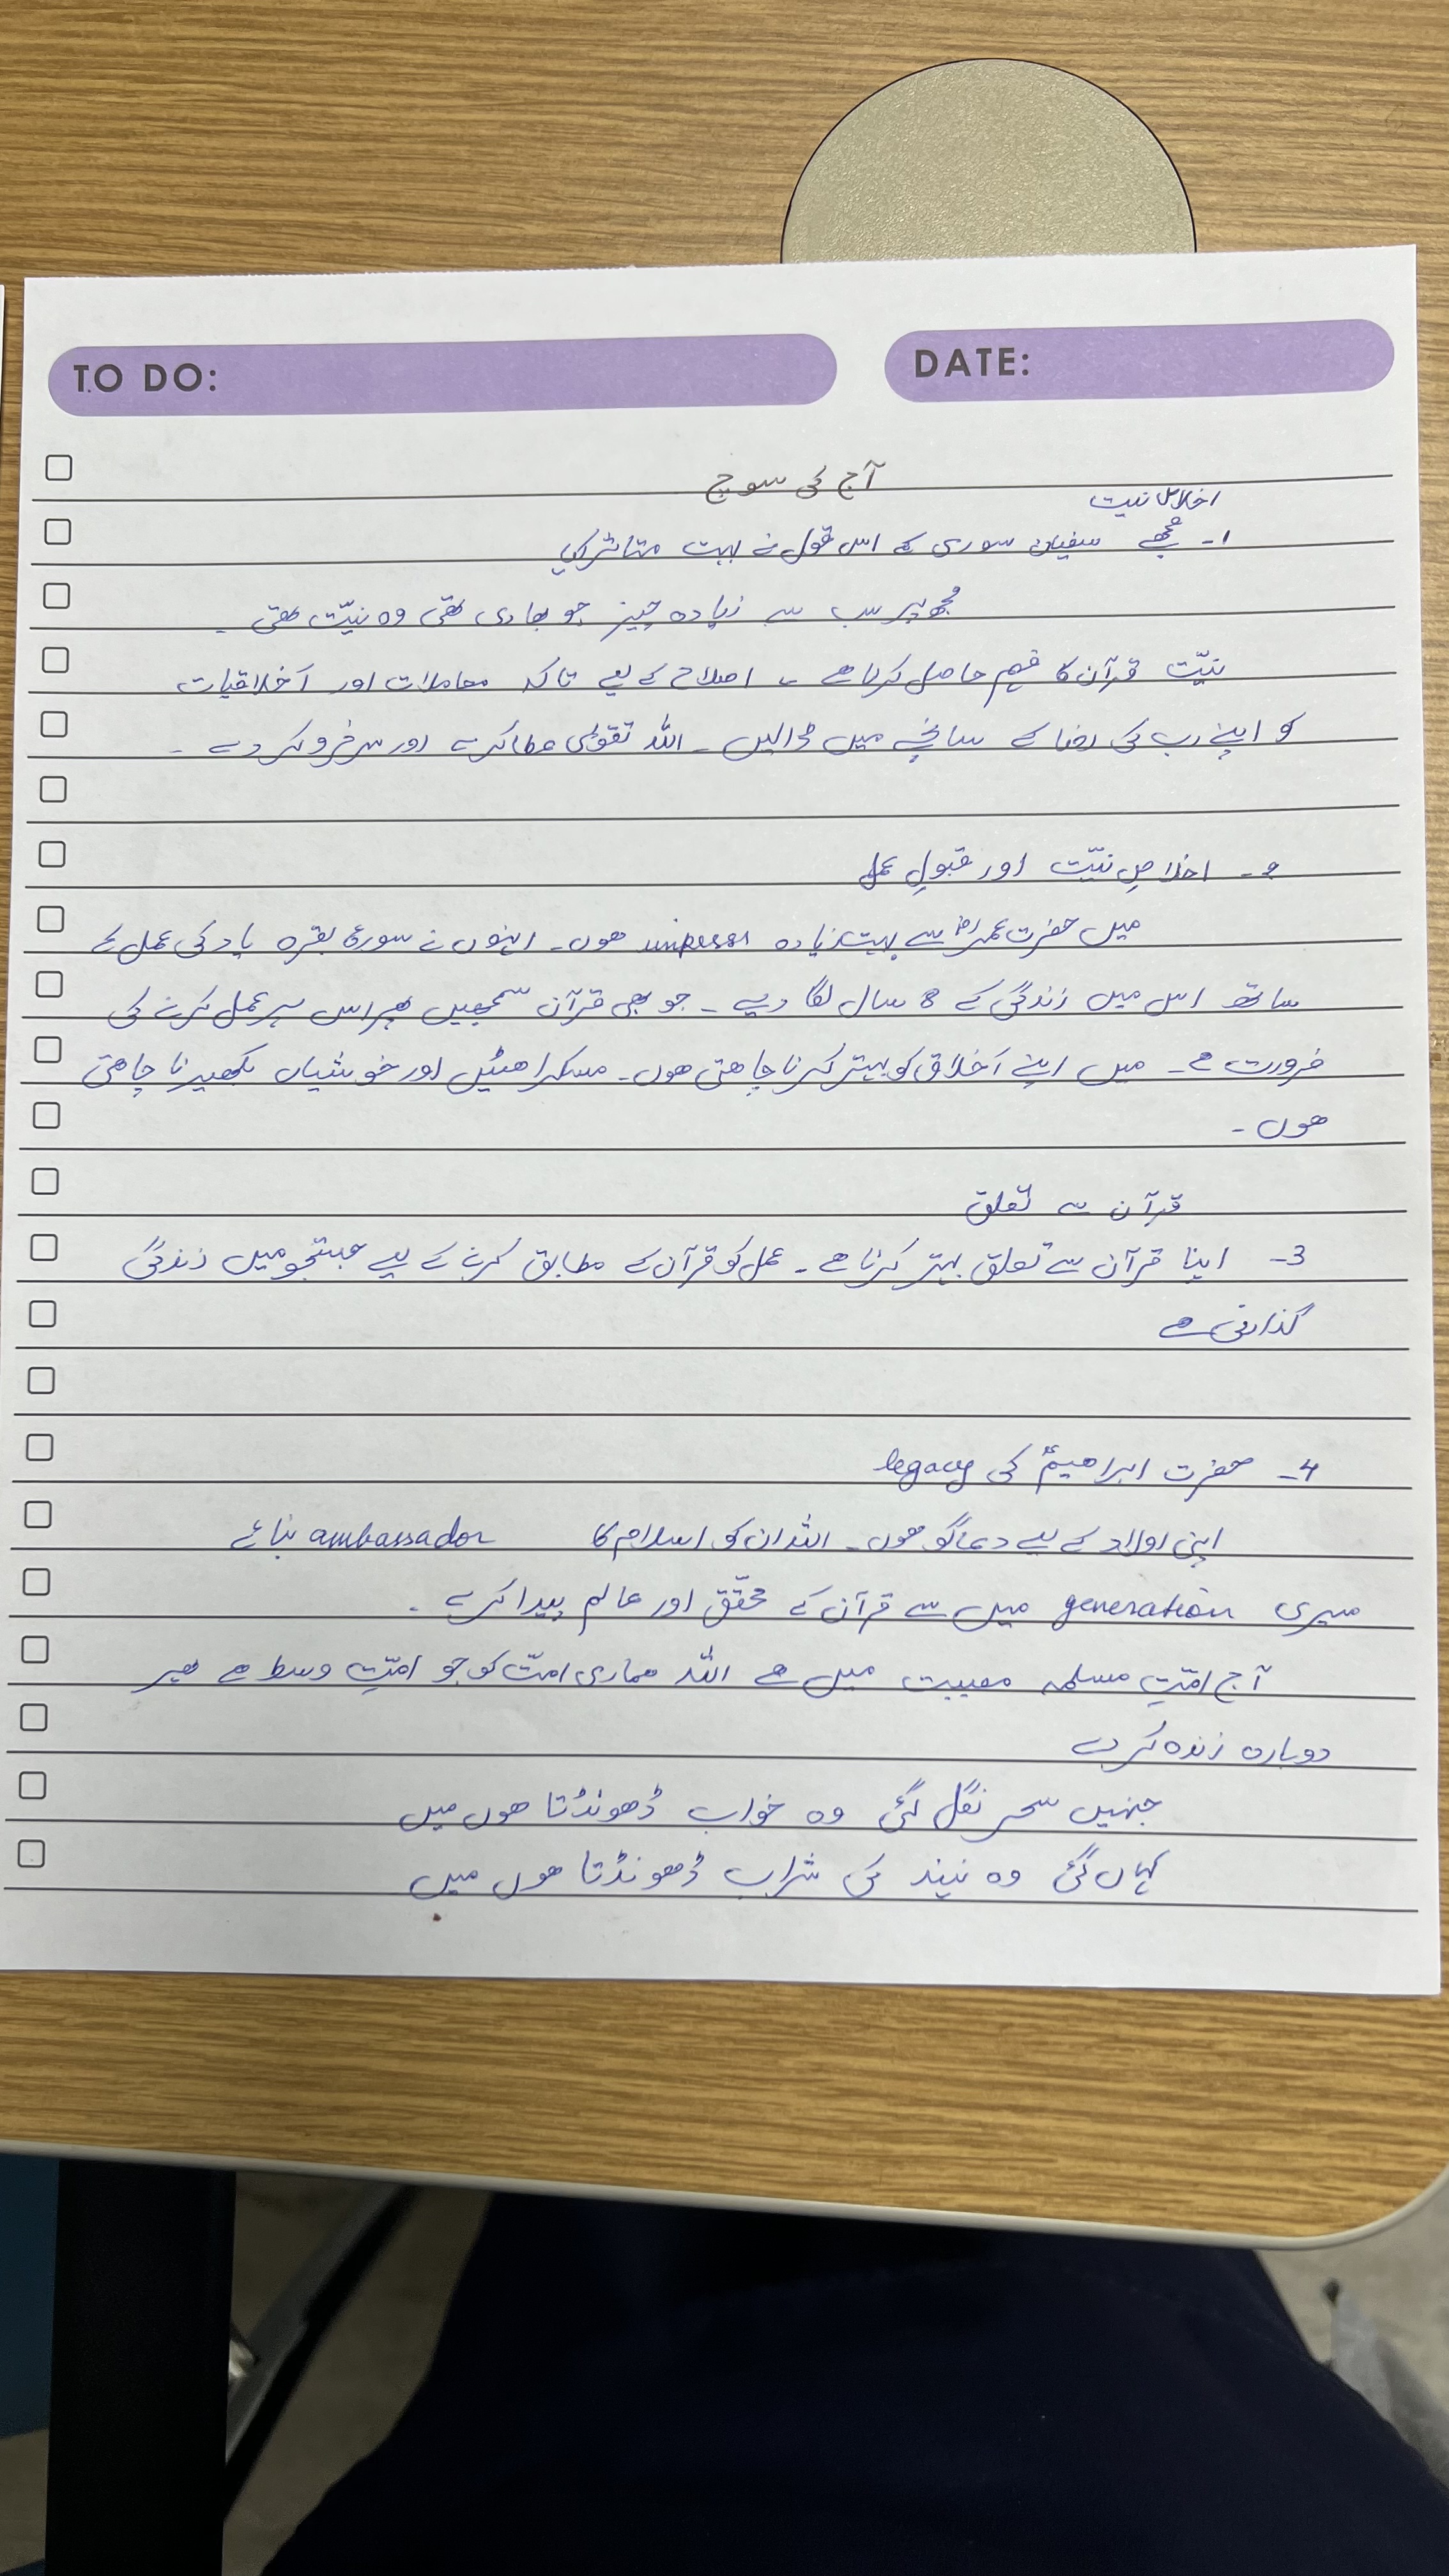 TO DO:
DATE:
آج کی سوچ
اخلاص نیت
1- مجھے سفیان سوری کے اس قول نے بہت متاثر کیا
مجھ پر سب سے زیادہ چیز جو بھاری تھی وہ نیّت تھی۔
نیّت قرآن کا فہم حاصل کرنا ہے ، اصلاح کے لیے تاکہ معاملات اور اَخلاقیات
کو اپنے رب کی رضا کے سانچے میں ڈالیں۔ اللہ تقویٰ عطا کرے اور سرخرو کر دے ۔
2- اخلاصِ نیّت اور قبولِ عمل
میں حضرت عمرؓ سے بہت زیادہ ہوں۔ انہوں نے سورۃ بقرہ یاد کی عمل کے
ساتھ اس میں زندگی کے 8 سال لگا دیے ۔ جو بھی قرآن سمجھیں پھر اس پر عمل کرنے کی
ضرورت ہے۔ میں اپنے اَخلاق کو بہتر کرنا چاھتی ھوں۔ مسکراھٹیں اور خوشیاں بکھیرنا چاھتی
ھوں ۔
قرآن سے تعلق
3- اپنا قرآن سے تعلق بہتر کرنا ہے ۔ عمل کو قرآن کے مطابق کرنے کے لیے جستجو میں زندگی
گذارنی ہے
4- حضرت ابراھیمؑ کی legacy
اپنی اولاد کے لیے دعا گو ھوں۔ اللہ ان کو اسلام کا ambassador بنائے
میری generation میں سے قرآن کے محقّق اور عالم پیدا کرے ۔
آج امّتِ مسلمہ مصیبت میں ہے اللہ ھماری امّت کو جو امّتِ وسط ہے پھر
دوبارہ زندہ کر دے
جنہیں سحر نگل گئی وہ خواب ڈھونڈتا ھوں میں
کہاں گئی وہ نیند کی شراب ڈھونڈتا ھوں میں